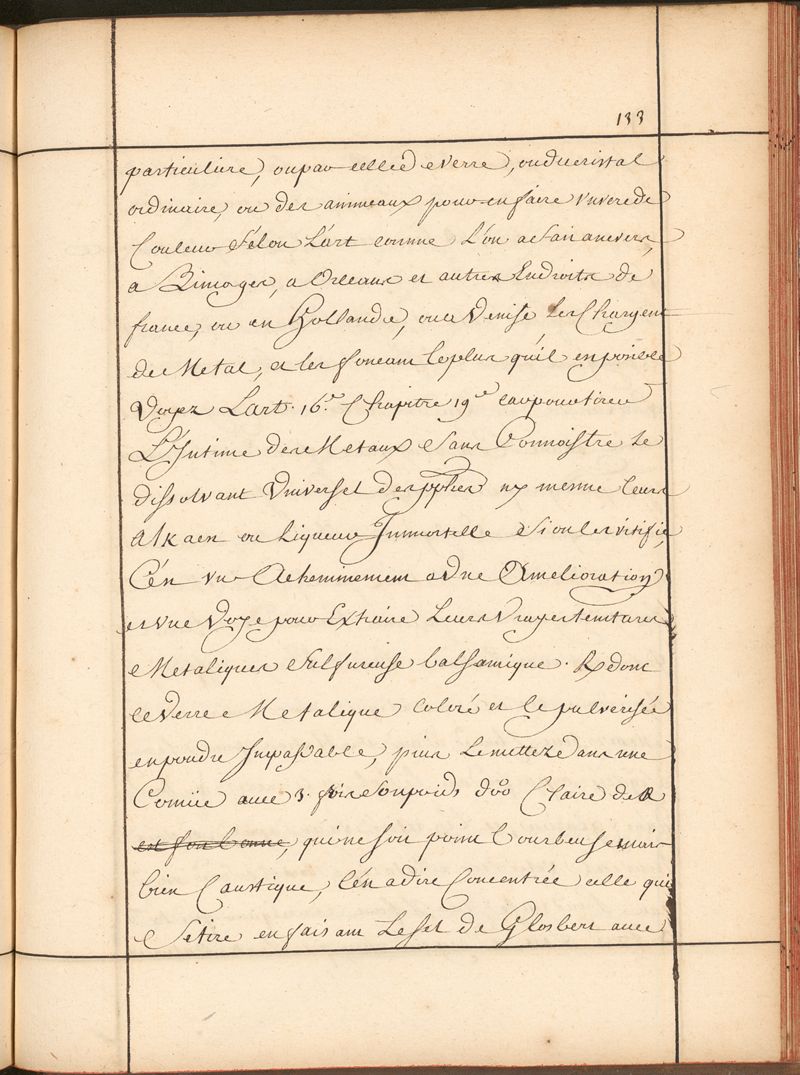 133
particuliere, ou par celle de verre, ou du cristal
ordinaire, ou des aimmeaux pour en faire un vere de
Couleur Sélon L'art comme L'on a fait anvers,
a Limoges, a Orleans et autres Endroits de
france, ou en Hollande, ou a Venise les Chargent
de Metal, et les foncant le plus qu'il en possible
Voyez L'art. 16.e Chapitre 19.e car pour tirer
L'Intime des Metaux Sans Connoistre Le
dissolvant Universel des pphes ny mesme leurs
alKaen ou Liqueur Immortelle Si on les vitrifie,
C'én un Acheminement a Une Amelioration
et une Voye pour Extraire Leurs Vrayes teintures
Metaliques Sulfureuse balsamique. donc
le Verre Metalique Coloré et le pulverisée
en poudre Impalpable, puis Le mettez dans une
Cornüe avec 3. fois Son poids Claire de
qui ne soit point bourbeuse mais
bien Caustique, C'én adire Concentrée celle qui
Se tire en faisant Le Sel de Glosbert avec